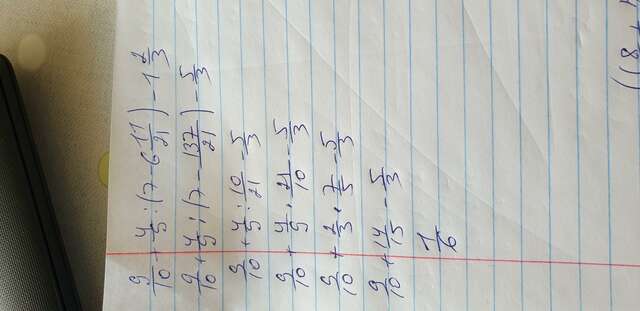 9/10 + 4/9 : (7 - 6 11/21) - 1 2/3
9/10 + 4/9 : (7 - 137/21) - 5/3
9/10 + 4/9 : 10/21 - 5/3
9/10 + 4/9 · 21/10 - 5/3
9/10 + 2/3 · 7/5 - 5/3
9/10 + 14/15 - 5/3
1/6
((8 +